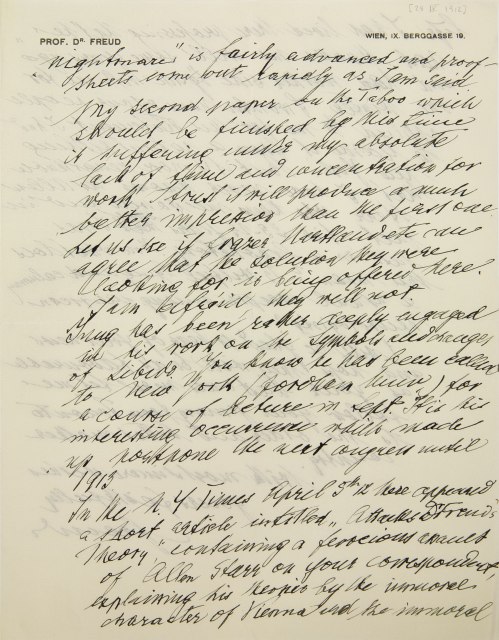 [28 IV. 1912]
PROF. Dr. FREUD
WIEN, IX. BERGGASSE 19.
"nightmare" is fairly advanced and proof-
sheets come out rapidly as I am said
My second paper on the Taboo which
should be finished by this time
is suffering under my absolute
lack of time and concentration for
work. I trust it will produce a much
better impression than the first one
Let us see if Frazer Hartland etc can
agree that the solution they were
looking for is being offered here.
I am afraid they will not.
Jung has been rather deeply engaged
in his work on the symbols and
of Libido. You know he has been called
to New York (Fordham Univ) for
a course of lecture in sept. It is his
interesting occurrence which made
us postpone the next congress until
1913
In the N. Y Times April 5th there appeared
a short article intitled „Attacks Dr Freud's
Theory" containing a ferocious
of Allen Starr on your correspondent
explaining his theories by the immoral
character of Vienna and the immoral